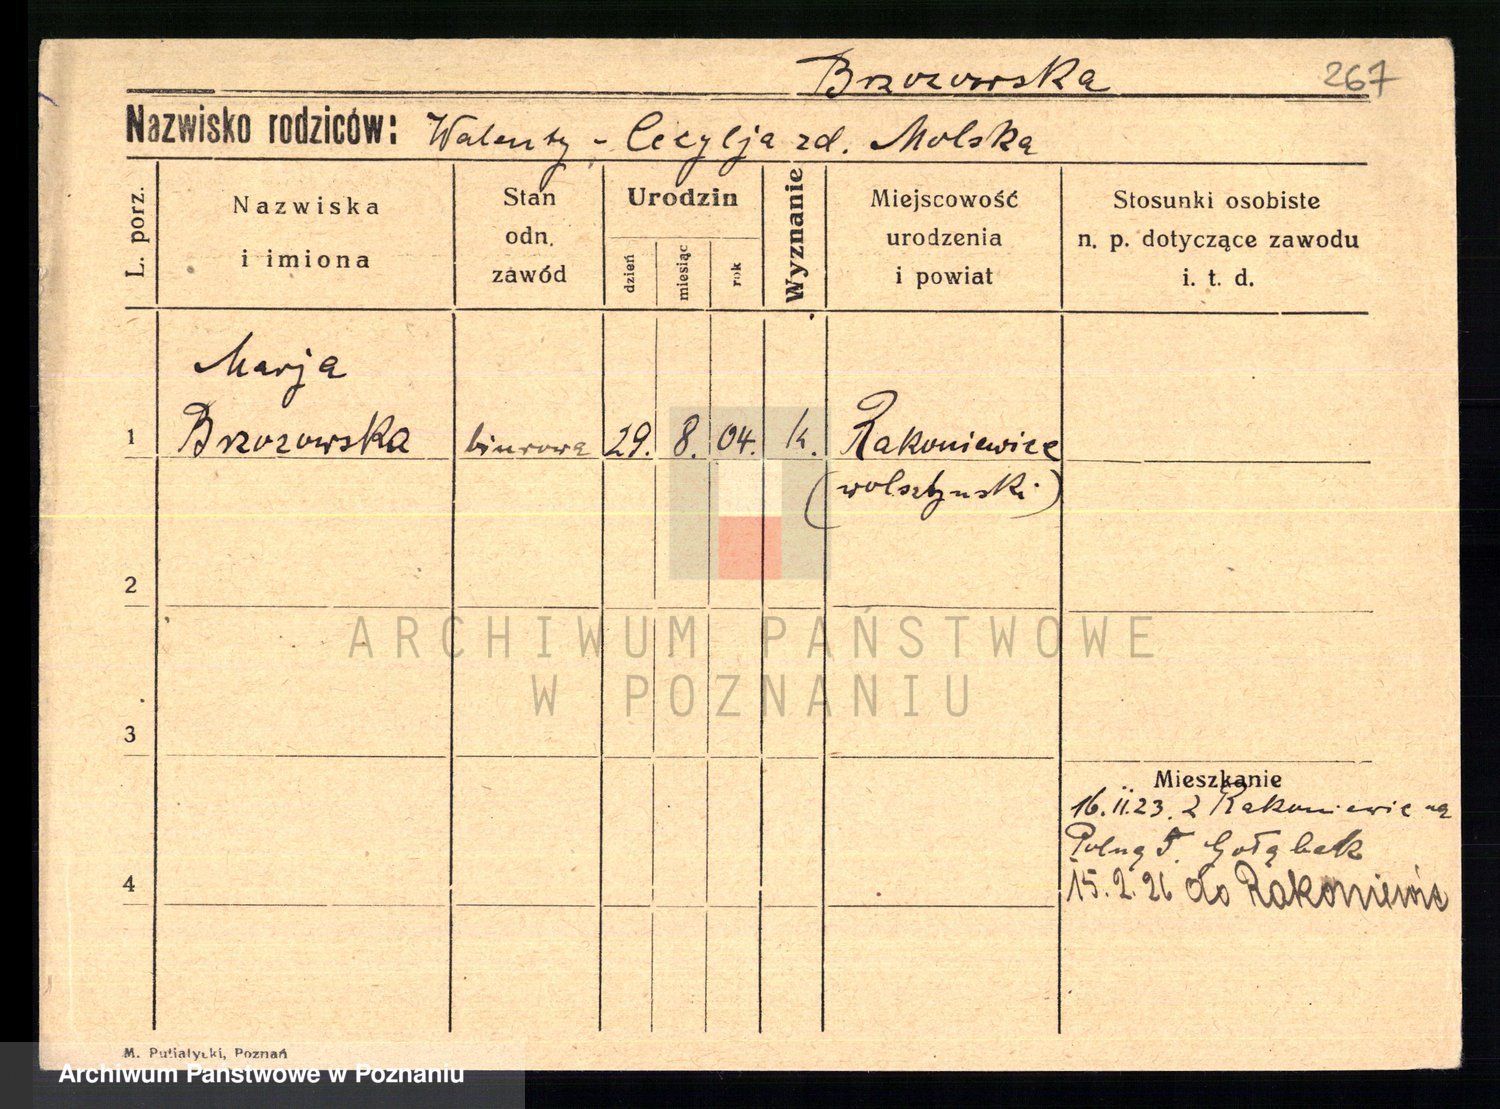 Brzozowska 267
Nazwisko rodziców: Walenty - Cecylja zd. Molska
L. porz.
Nazwiska
i imiona
Stan
odn.
zawód
Urodzin
dzień
miesiąc
rok
Wyznanie
Miejscowość
urodzenia
i powiat
Stosunki osobiste
n. p. dotyczące zawodu
i. t. d.
Marja
1 Brzozowska biurowa 29. 8. 04. k. Rakoniewice
(wolsztyński)
2
ARCHIWUM PAŃSTWOWE
W POZNANIU
3
Mieszkanie
16.II.23. z Rakoniewic na
Polną 5. Gołąbek
4
15.2.26 do Rakoniewic
M. Putiatycki, Poznań
Archiwum Państwowe w Poznaniu